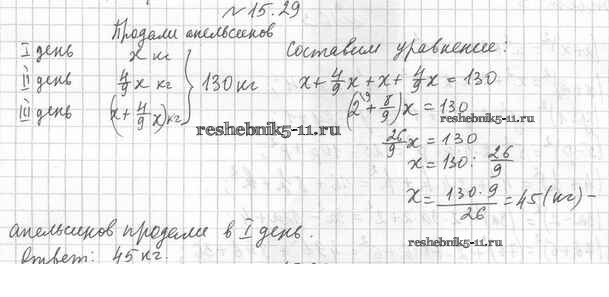 №15.29
Продали апельсинов
I день x кг
II день 4/9 x кг
III день (x + 4/9 x) кг } 130 кг
Составим уравнение:
x + 4/9 x + x + 4/9 x = 130
(2\9 + 8/9) x = 130
26/9 x = 130
x = 130 : 26/9
x = 130·9/26 = 45 (кг) –
апельсинов продали в I день.
Ответ: 45 кг.
reshebnik5-11.ru
reshebnik5-11.ru